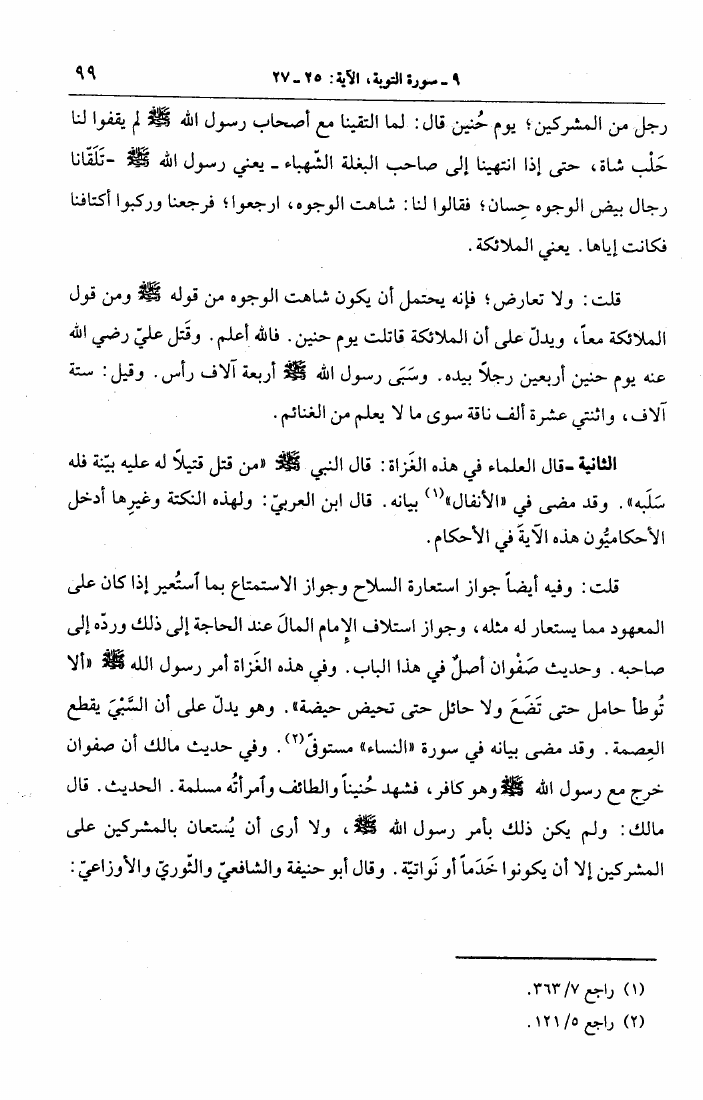 ٩ ـ سورة التوبة، الآية: ٢٥ ـ ٢٧
٩٩
رجل من المشركين؛ يوم حُنين قال: لما التقينا مع أصحاب رسول الله ﷺ لم يقفوا لنا
حَلْب شاة، حتى إذا انتهينا إلى صاحب البغلة الشّهباء ـ يعني رسول الله ﷺ ـ تَلَقّانا
رجال بيض الوجوه حِسان؛ فقالوا لنا: شاهت الوجوه، ارجعوا؛ فرجعنا وركبوا أكتافنا
فكانت إياها. يعني الملائكة.
قلت: ولا تعارض؛ فإنه يحتمل أن يكون شاهت الوجوه من قوله ﷺ ومن قول
الملائكة معاً، ويدلّ على أن الملائكة قاتلت يوم حنين. فالله أعلم. وقَتل عليّ رضي الله
عنه يوم حنين أربعين رجلاً بيده. وسَبَى رسول الله ﷺ أربعة آلاف رأس. وقيل: ستة
آلاف، واثنتي عشرة ألف ناقة سوى ما لا يعلم من الغنائم.
الثانية ـ قال العلماء في هذه الغَزاة: قال النبي ﷺ «من قتل قتيلاً له عليه بيّنة فله
سَلَبه». وقد مضى في «الأنفال»(١) بيانه. قال ابن العربيّ: ولهذه النكتة وغيرها أدخل
الأحكاميُّون هذه الآيةَ في الأحكام.
قلت: وفيه أيضاً جواز استعارة السلاح وجواز الاستمتاع بما ٱستُعير إذا كان على
المعهود مما يستعار له مثله، وجواز استلاف الإمام المالَ عند الحاجة إلى ذلك وردّه إلى
صاحبه. وحديث صَفْوان أصلٌ في هذا الباب. وفي هذه الغَزاة أمر رسول الله ﷺ «ألا
تُوطأ حامل حتى تَضَعَ ولا حائل حتى تحيض حيضة». وهو يدلّ على أن السَّبْيَ يقطع
العِصمة. وقد مضى بيانه في سورة «النساء» مستوفًى(٢). وفي حديث مالك أن صفوان
خرج مع رسول الله ﷺ وهو كافر، فشهد حُنيناً والطائف وٱمرأتُه مسلمة. الحديث. قال
مالك: ولم يكن ذلك بأمر رسول الله ﷺ، ولا أرى أن يُستعان بالمشركين على
المشركين إلا أن يكونوا خَدَماً أو نَواتيّة. وقال أبو حنيفة والشافعيّ والثّوريّ والأوزاعيّ:
(١) راجع ٣٦٣/٧.
(٢) راجع ١٢١/٥.